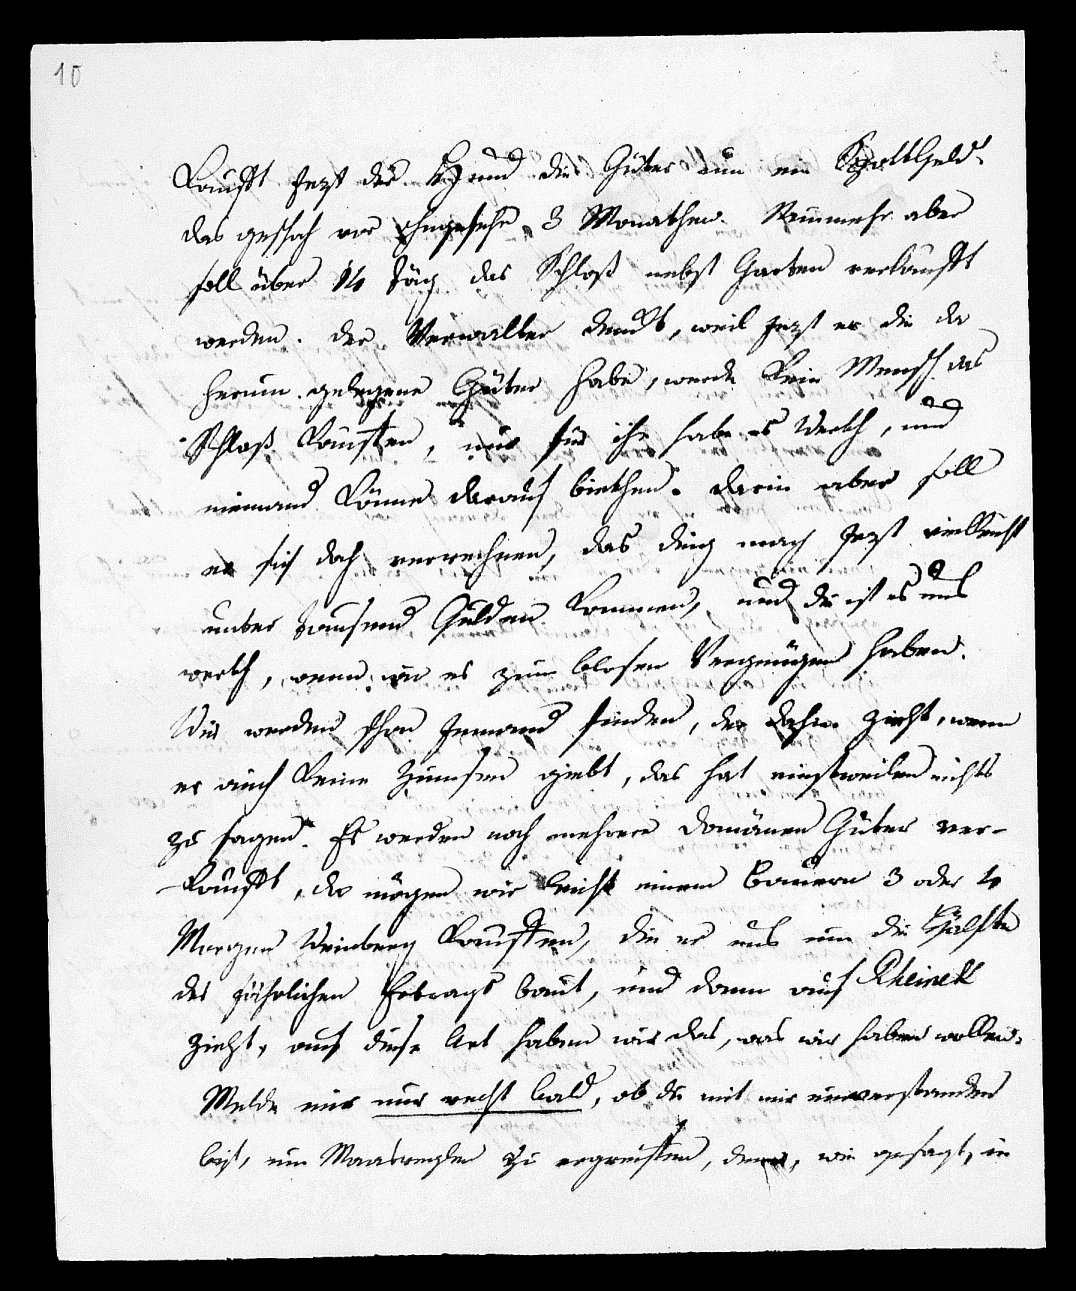 10
kauft jezt der Hund die Güter um ein Spottgeld.
das geschah vor ohngefehr 3 Monathen. Nunmehr aber
soll über 14 Täg das Schloß nebst Garten verkauft
werden. der Verwalter denkt, weil jezt er die da
herum gelegene Güter habe, werde kein Mensch das
Schloß kaufen, nur für ihn habe es Werth, und
niemand könne darauf biethen. darin aber soll
er sich doch verrechnen, das ding mag jezt vielleicht
unter tausend Gulden kommen, und die ist es uns
werth, wenn wir es zum blosen Vergnügen haben.
Wir werden schon Jemand finden, der dahin zieht, wenn
er auch keine Zinnsen giebt, das hat einstweilen nichts
zu sagen. Es werden noch mehrere domänen Güter ver-
kauft, da mögen wir leicht einem Bauern 3 oder 4
Morgen Weinberg kaufen, die er uns um die Hälfte
des jährlichen Ertrags baut, und dann auf Rheineck
zieht, auf diese Art haben wir das, was wir haben wollen.
Melde mir nur recht bald, ob du mit mir einverstanden
bist, um Maasreglen zu ergreiffen, denn, wie gesagt, in